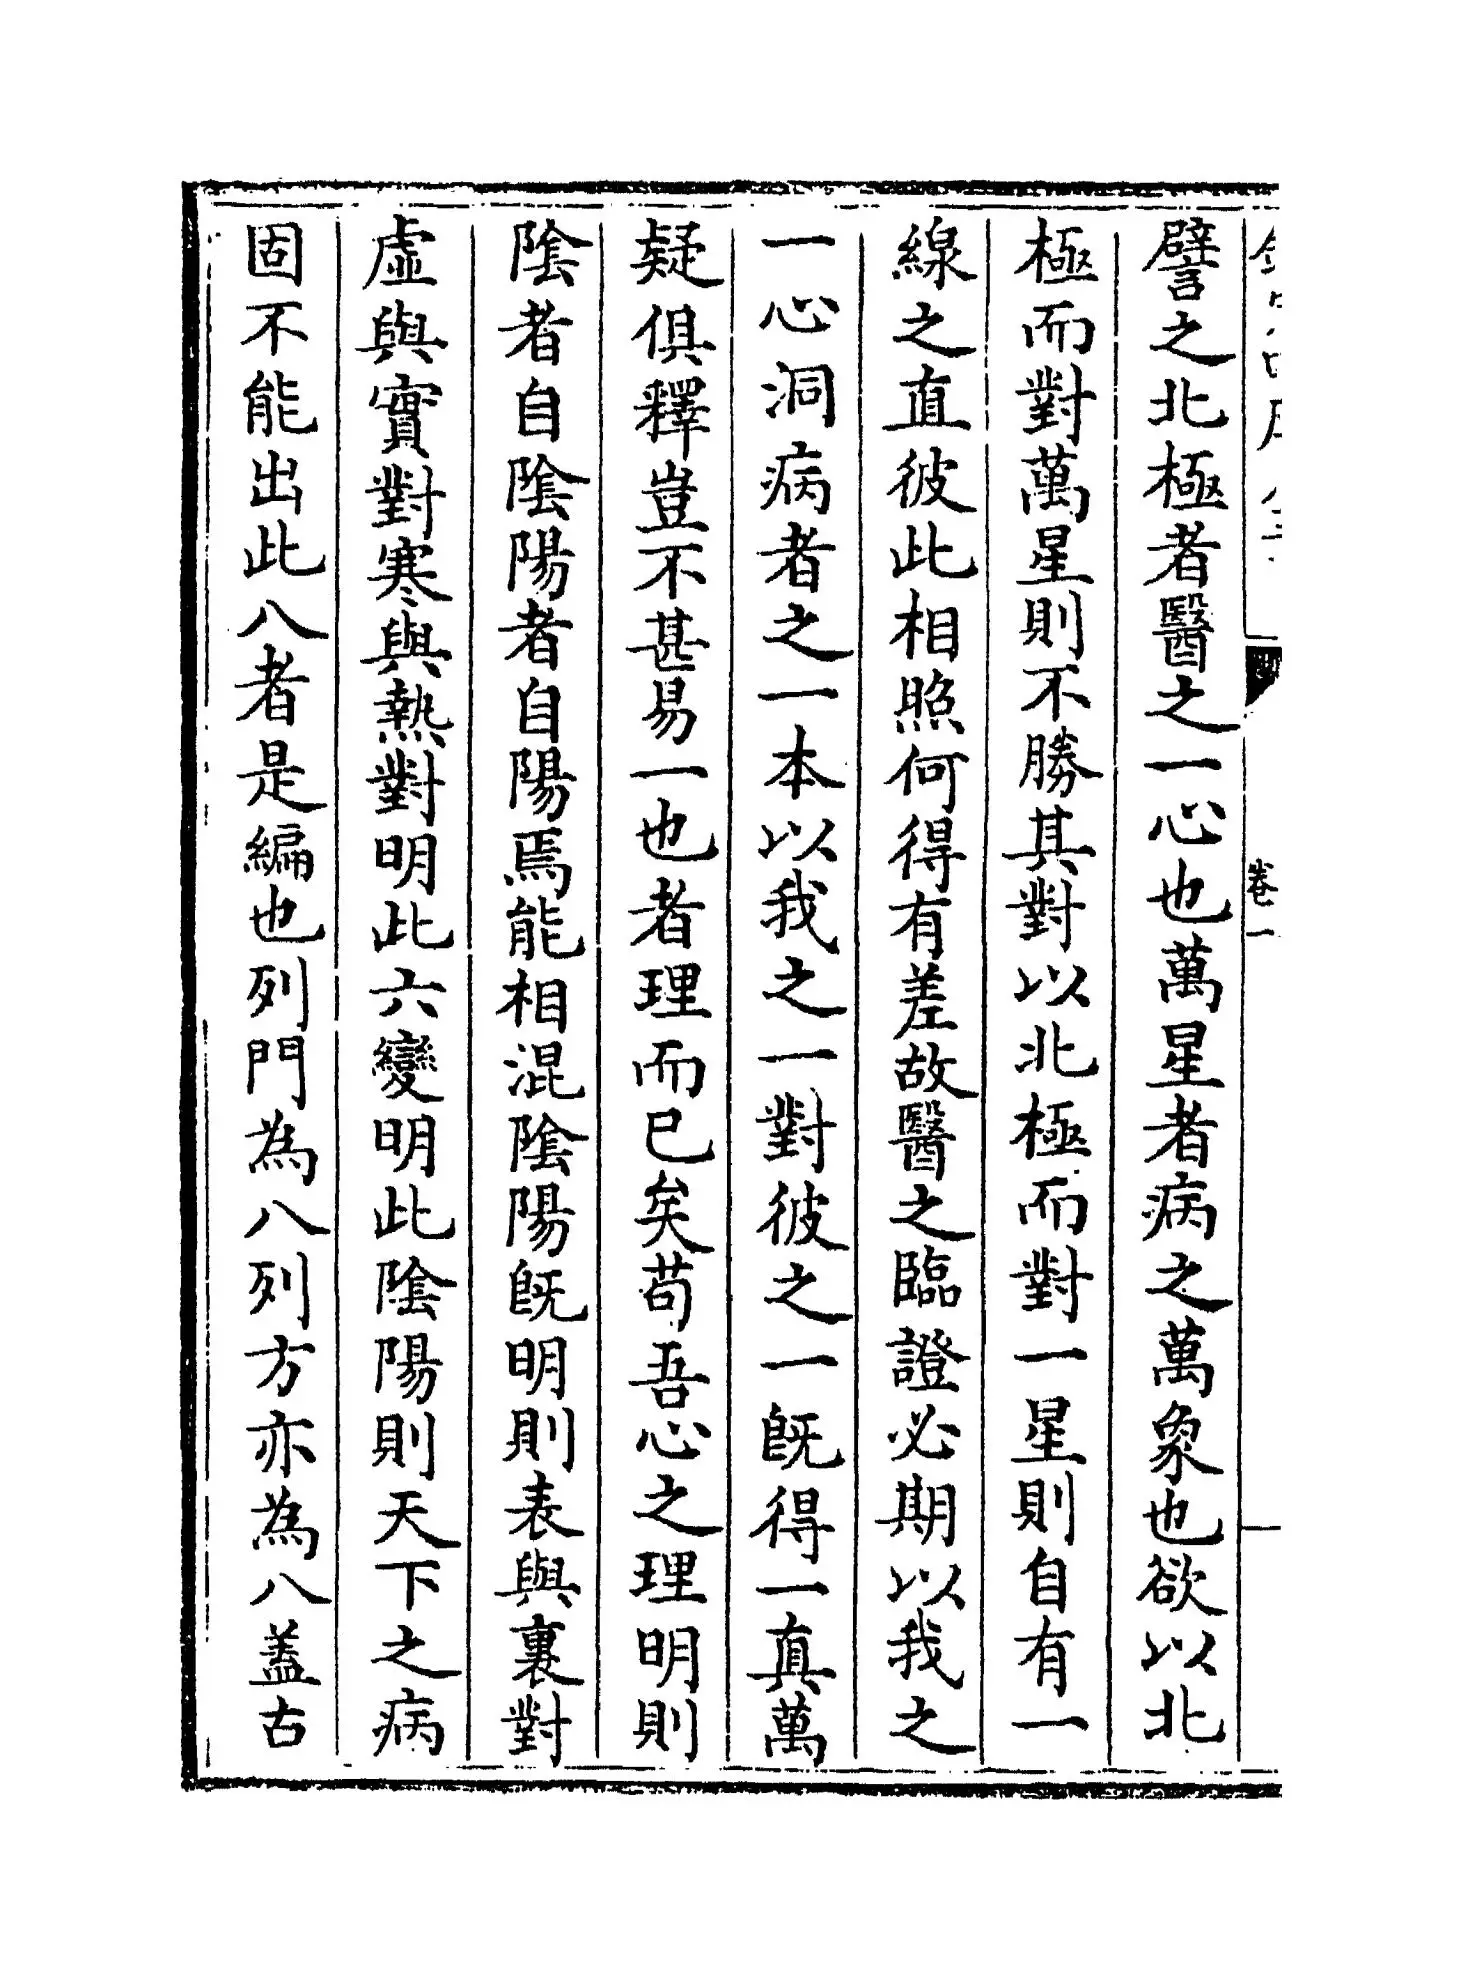 譬之北極者醫之一心也萬星者病之萬象也欲以北
極而對萬星則不勝其對以北極而對一星則自有一
線之直彼此相照何得有差故醫之臨證必期以我之
一心洞病者之一本以我之一對彼之一既得一真萬
疑俱釋豈不甚易一也者理而已矣苟吾心之理明則
隂者自隂陽者自陽焉能相混隂陽既明則表與裏對
虛與實對寒與熱對明此六變明此隂陽則天下之病
固不能出此八者是編也列門為八列方亦為八蓋古
卷一